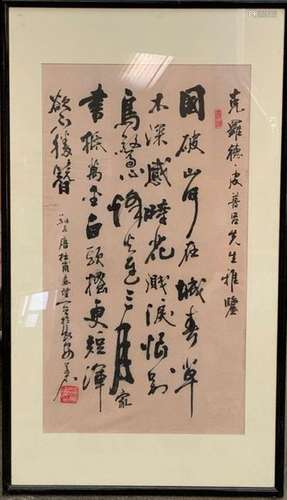 克羅德·皮普呂先生雅鑒
國破山河在城春草
木深感時花濺淚恨別
鳥驚心烽火連三月家
書抵萬金白頭搔更短渾
欲不勝簪
唐杜甫春望